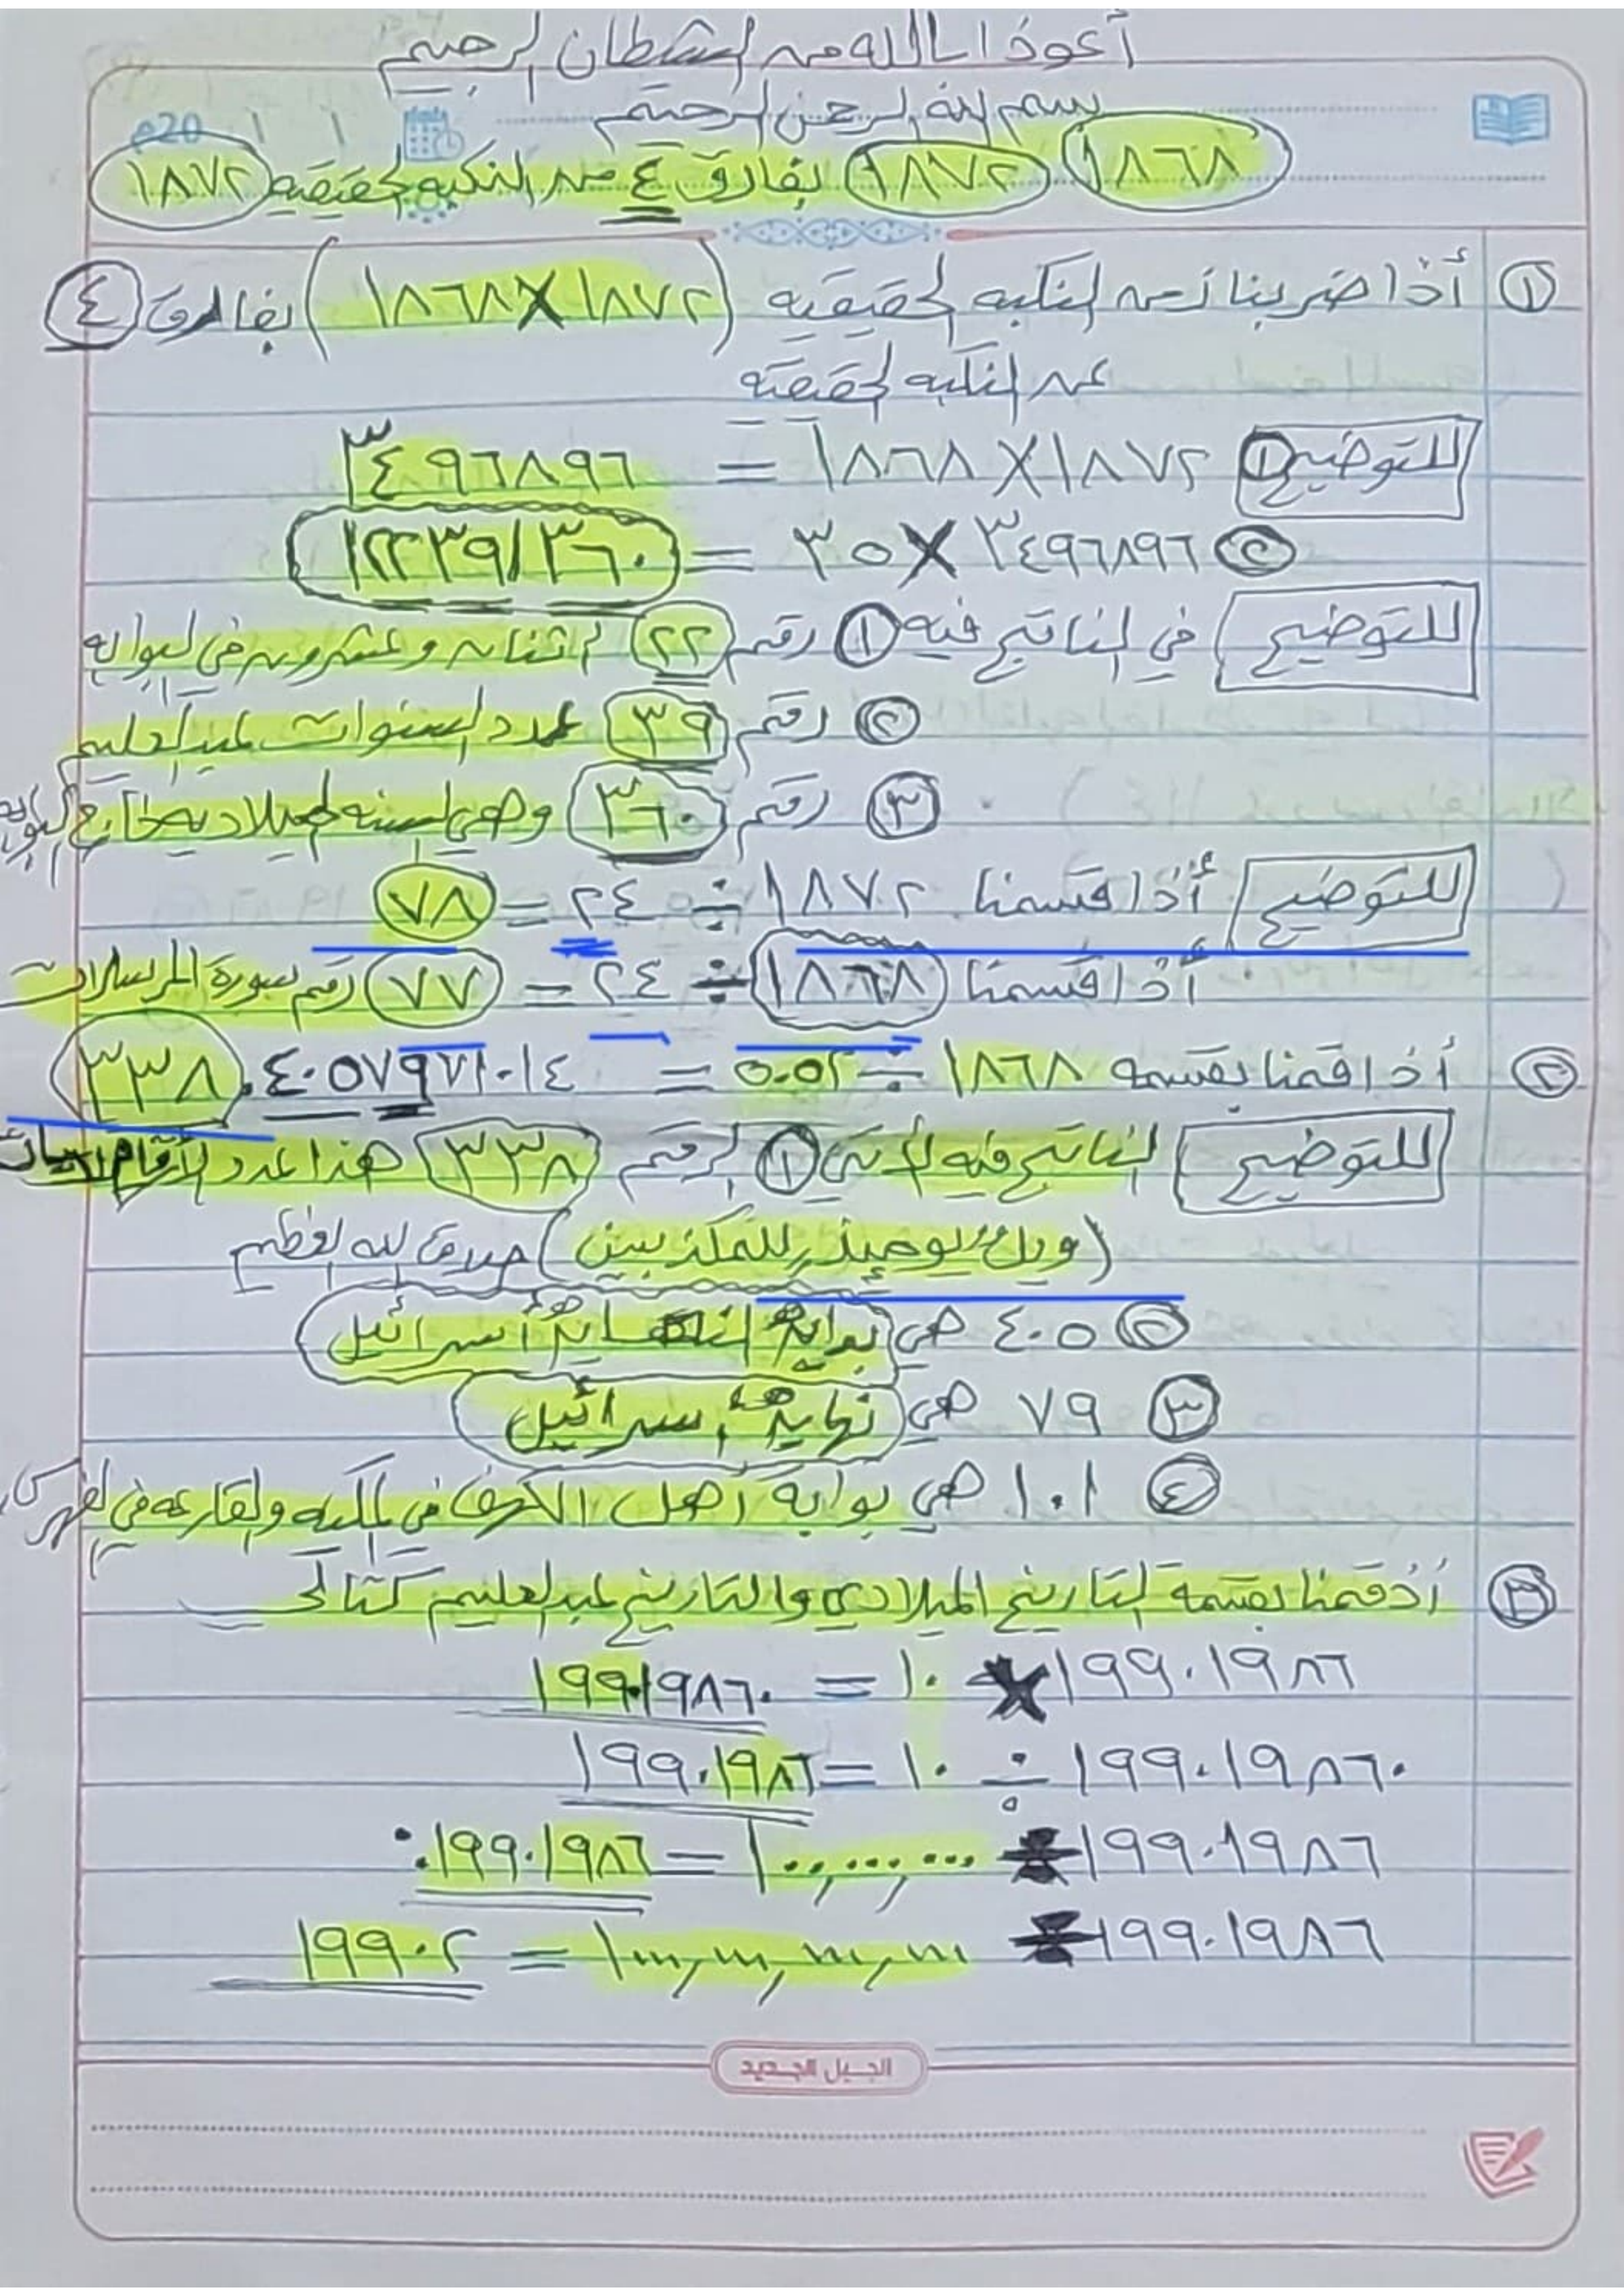 أعوذ بالله من الشيطان الرجيم
بسم الله الرحمن الرحيم
20م / /
١٨٦٨ ١٨٧٢ بفارق ٤ من النكبه الحقيقيه ١٨٧٢
① أذا ضربنا زمن النكبه الحقيقيه (١٨٧٢ × ١٨٦٨) بفارق ٤
عن النكبه الحقيقيه
للتوضيح ① ١٨٧٢ × ١٨٦٨ = ٣٤٩٦٨٩٦
② ٣٤٩٦٨٩٦ × ٣٥ = ١٢٢٣٩١٣٦٠
للتوضيح في الناتج فيه ① رقم ٢٢ اثنان وعشرون في البوابه
② رقم ٣٩ عدد السنوات عبدالعليم
③ رقم ٣٦٠ وهي السنه الميلاديه خارج البوابه
للتوضيح أذا قسمنا ١٨٧٢ ÷ ٢٤ = ٧٨
أذا قسمنا ١٨٦٨ ÷ ٢٤ = ٧٧ رقم سورة المرسلات
② أذا قمنا بقسمه ١٨٦٨ ÷ ٥.٥٢ = ٣٣٨.٤٠٥٧٩٧١٠١٤
للتوضيح الناتج فيه الأتي ① الرقم ٣٣٨ هذا عدد الأرقام
(ويل يومئذ للمكذبين) صدق الله العظيم
② ٤٠٥ هي بوابة أسرائيل
③ ٧٩ هي نهاية أسرائيل
④ ١٠١ هي بوابة أهل الكهف في المكيه والقارعه في الفهرس
③ أذ قمنا بقسمة التاريخ الميلادي والتاريخ عبدالعليم كتالي
١٩٩٠١٩٨٦ × ١٠ = ١٩٩٠١٩٨٦٠
١٩٩٠١٩٨٦٠ ÷ ١٠ = ١٩٩٠١٩٨٦
١٩٩٠١٩٨٦ ÷ ١٠٠,٠٠٠,٠٠٠ = ٠.١٩٩٠١٩٨٦
١٩٩٠٢
الجيل الجديد